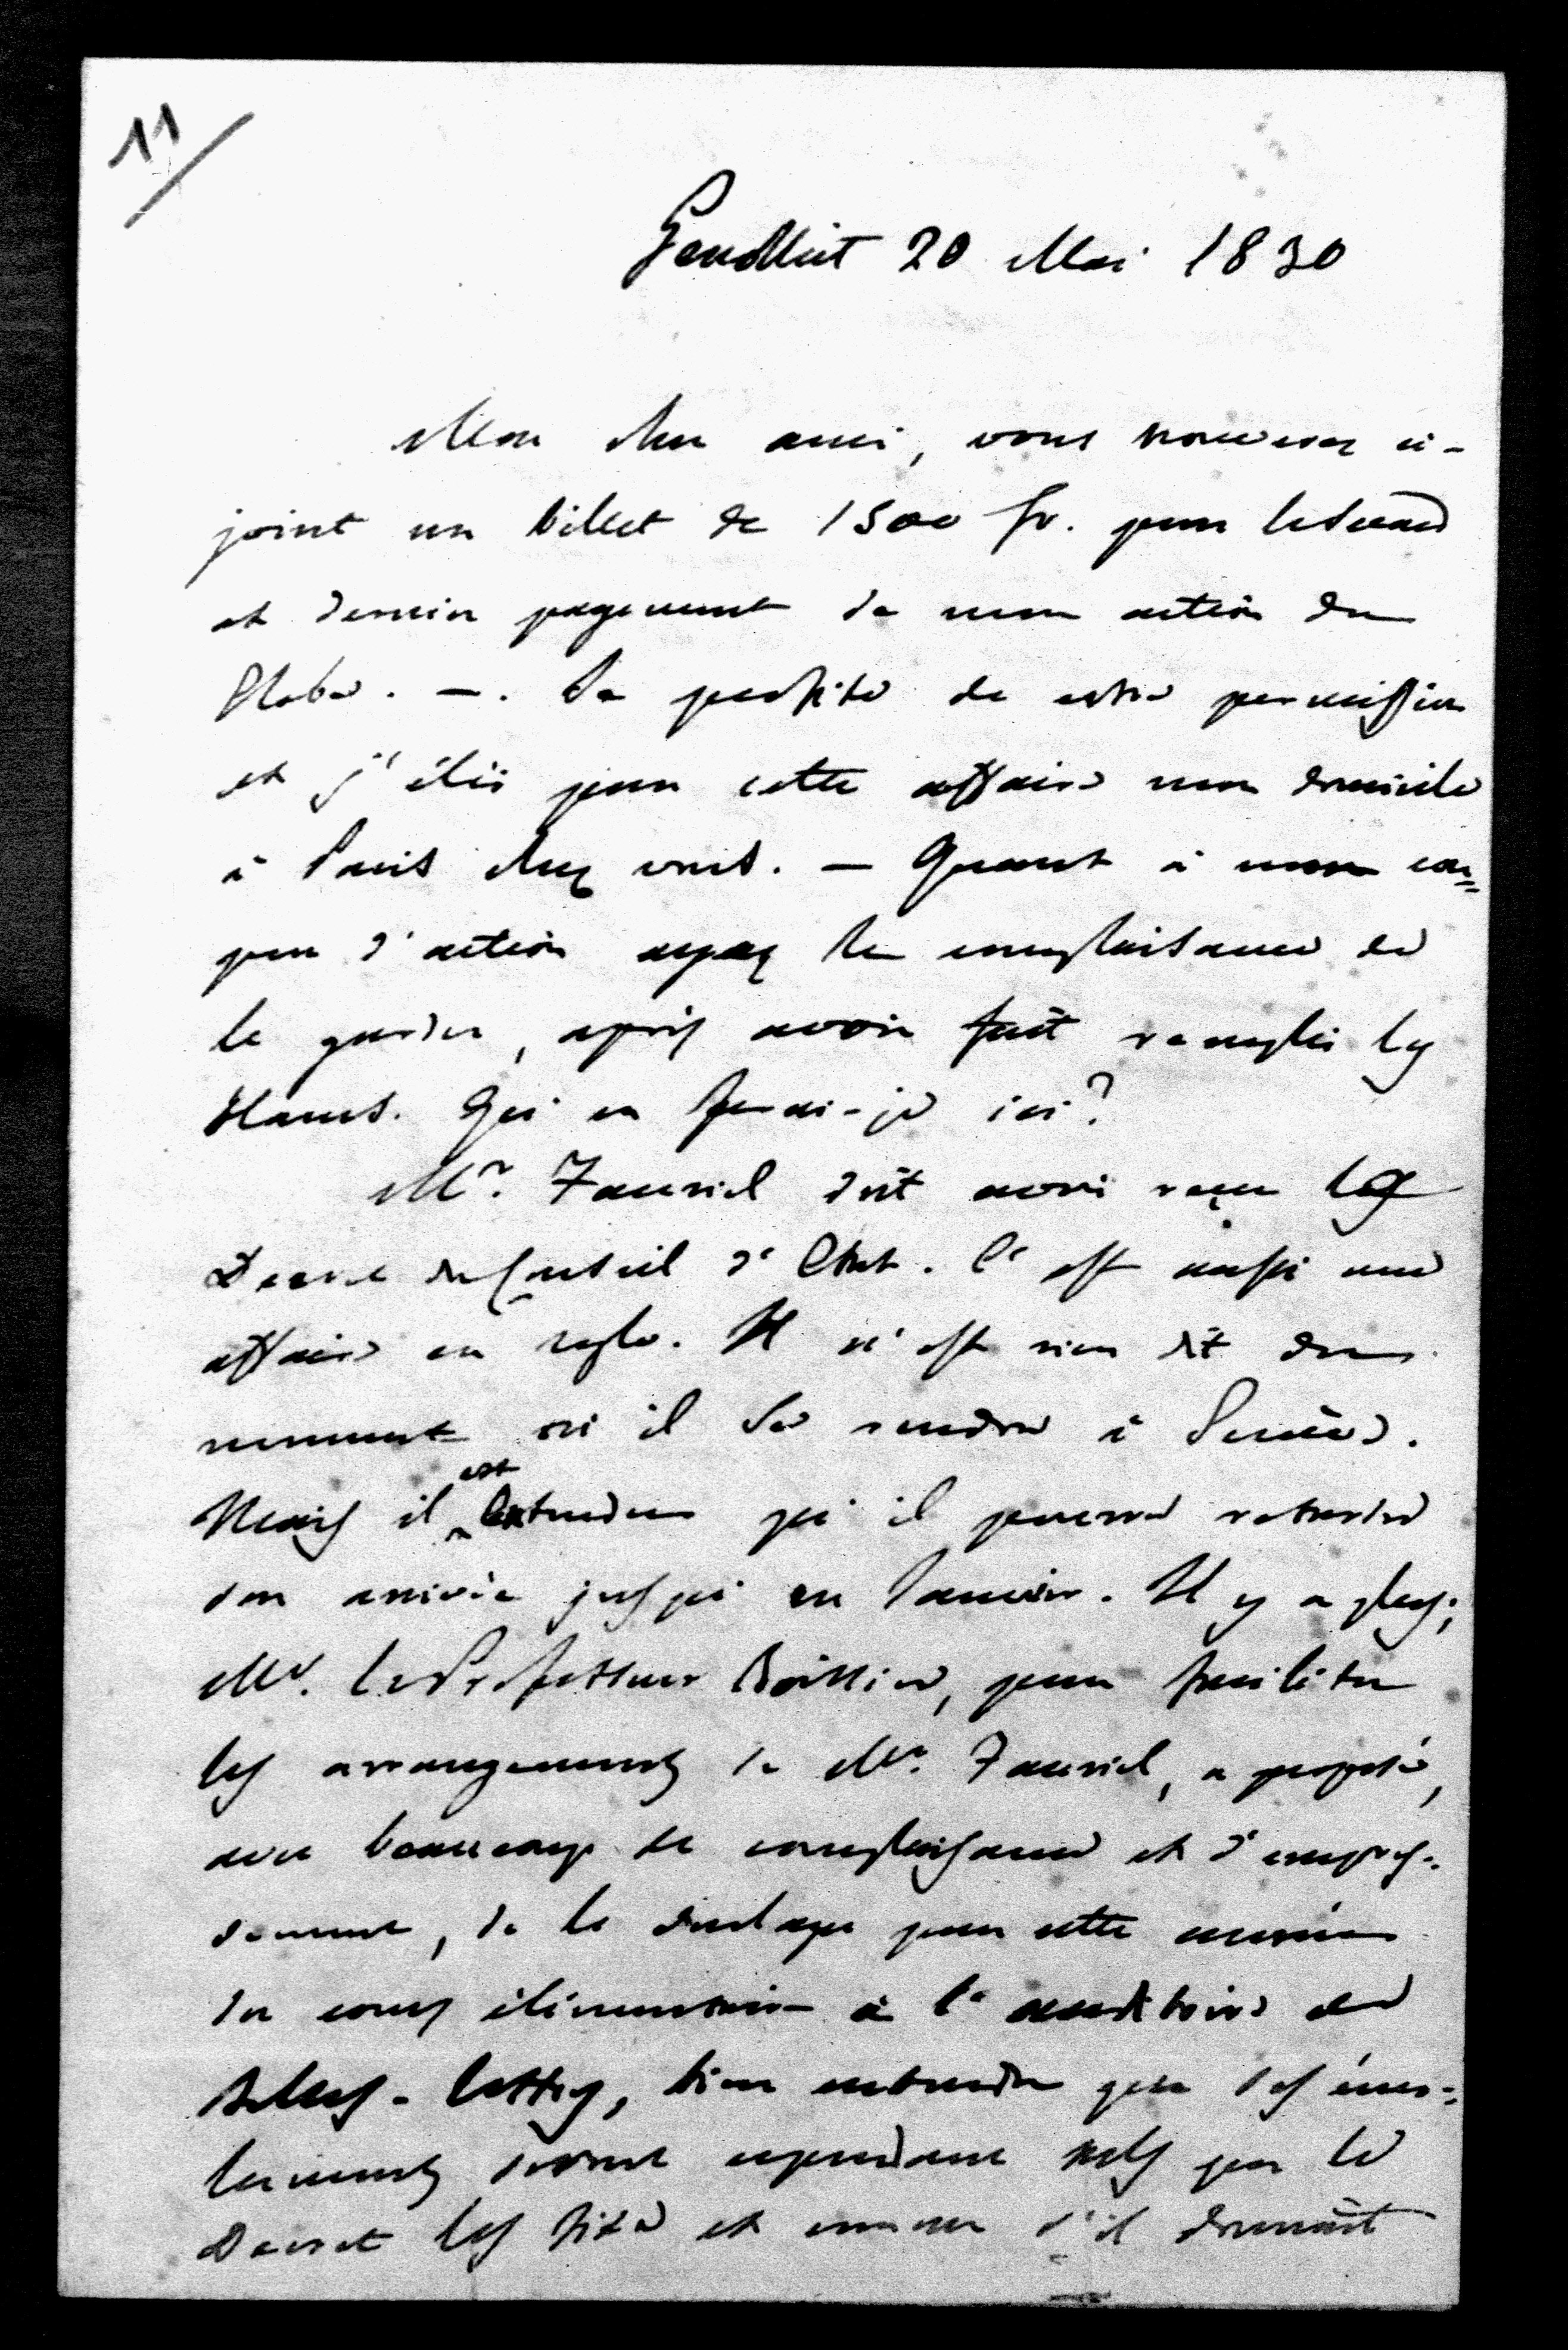 11
Genolliet 20 Mai 1830
Mon cher ami, vous trouverez ci-
joint un billet de 1500 fr. pour le second
et dernier payement de mon action du
Globe. —. Je profite de votre permission
et j'élis pour cette affaire mon domicile
à Paris chez vous. — Quant à mon cou=
pon d'action ayez la complaisance de
le garder, après avoir fait remplir les
blancs. Qu'en ferai-je ici?
Mr. Fauriel doit avoir reçu le
Decret du Conseil d'Etat. C'est aussi une
affaire en regle. Il n'est rien dit du
moment où il se rendra à Genève.
Mais il est entendu qu'il pourra retarder
son arrivée jusqu'en Janvier. Il y a plus;
Mr. le Professeur Boissier, pour faciliter
les arrangements de Mr. Fauriel, a proposé,
avec beaucoup de complaisance et d'empres-
sement, de le soulager pour cette année
du cours élémentaire à l'auditoire de
Belles-lettres, bien entendu que ses émo-
luments seront cependant tels que le
Decret les fixe et comme s'il donnait